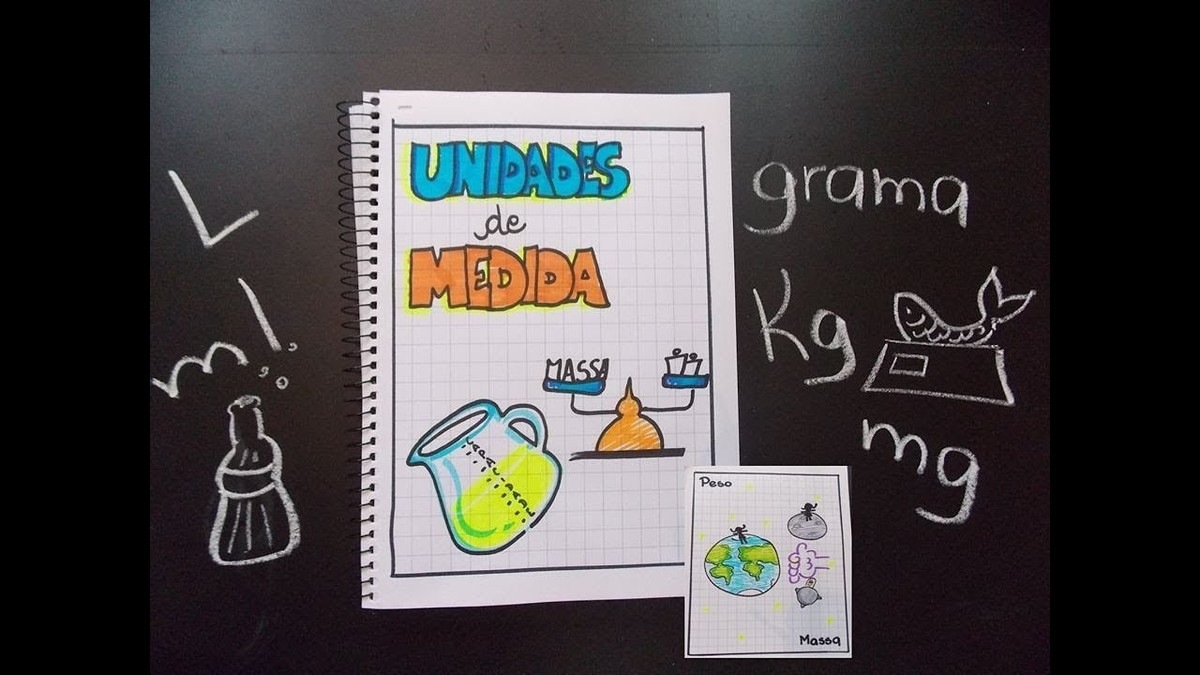 L
ml
UNIDADES
de
MEDIDA
MASSA
grama
Kg
mg
Peso
Massa